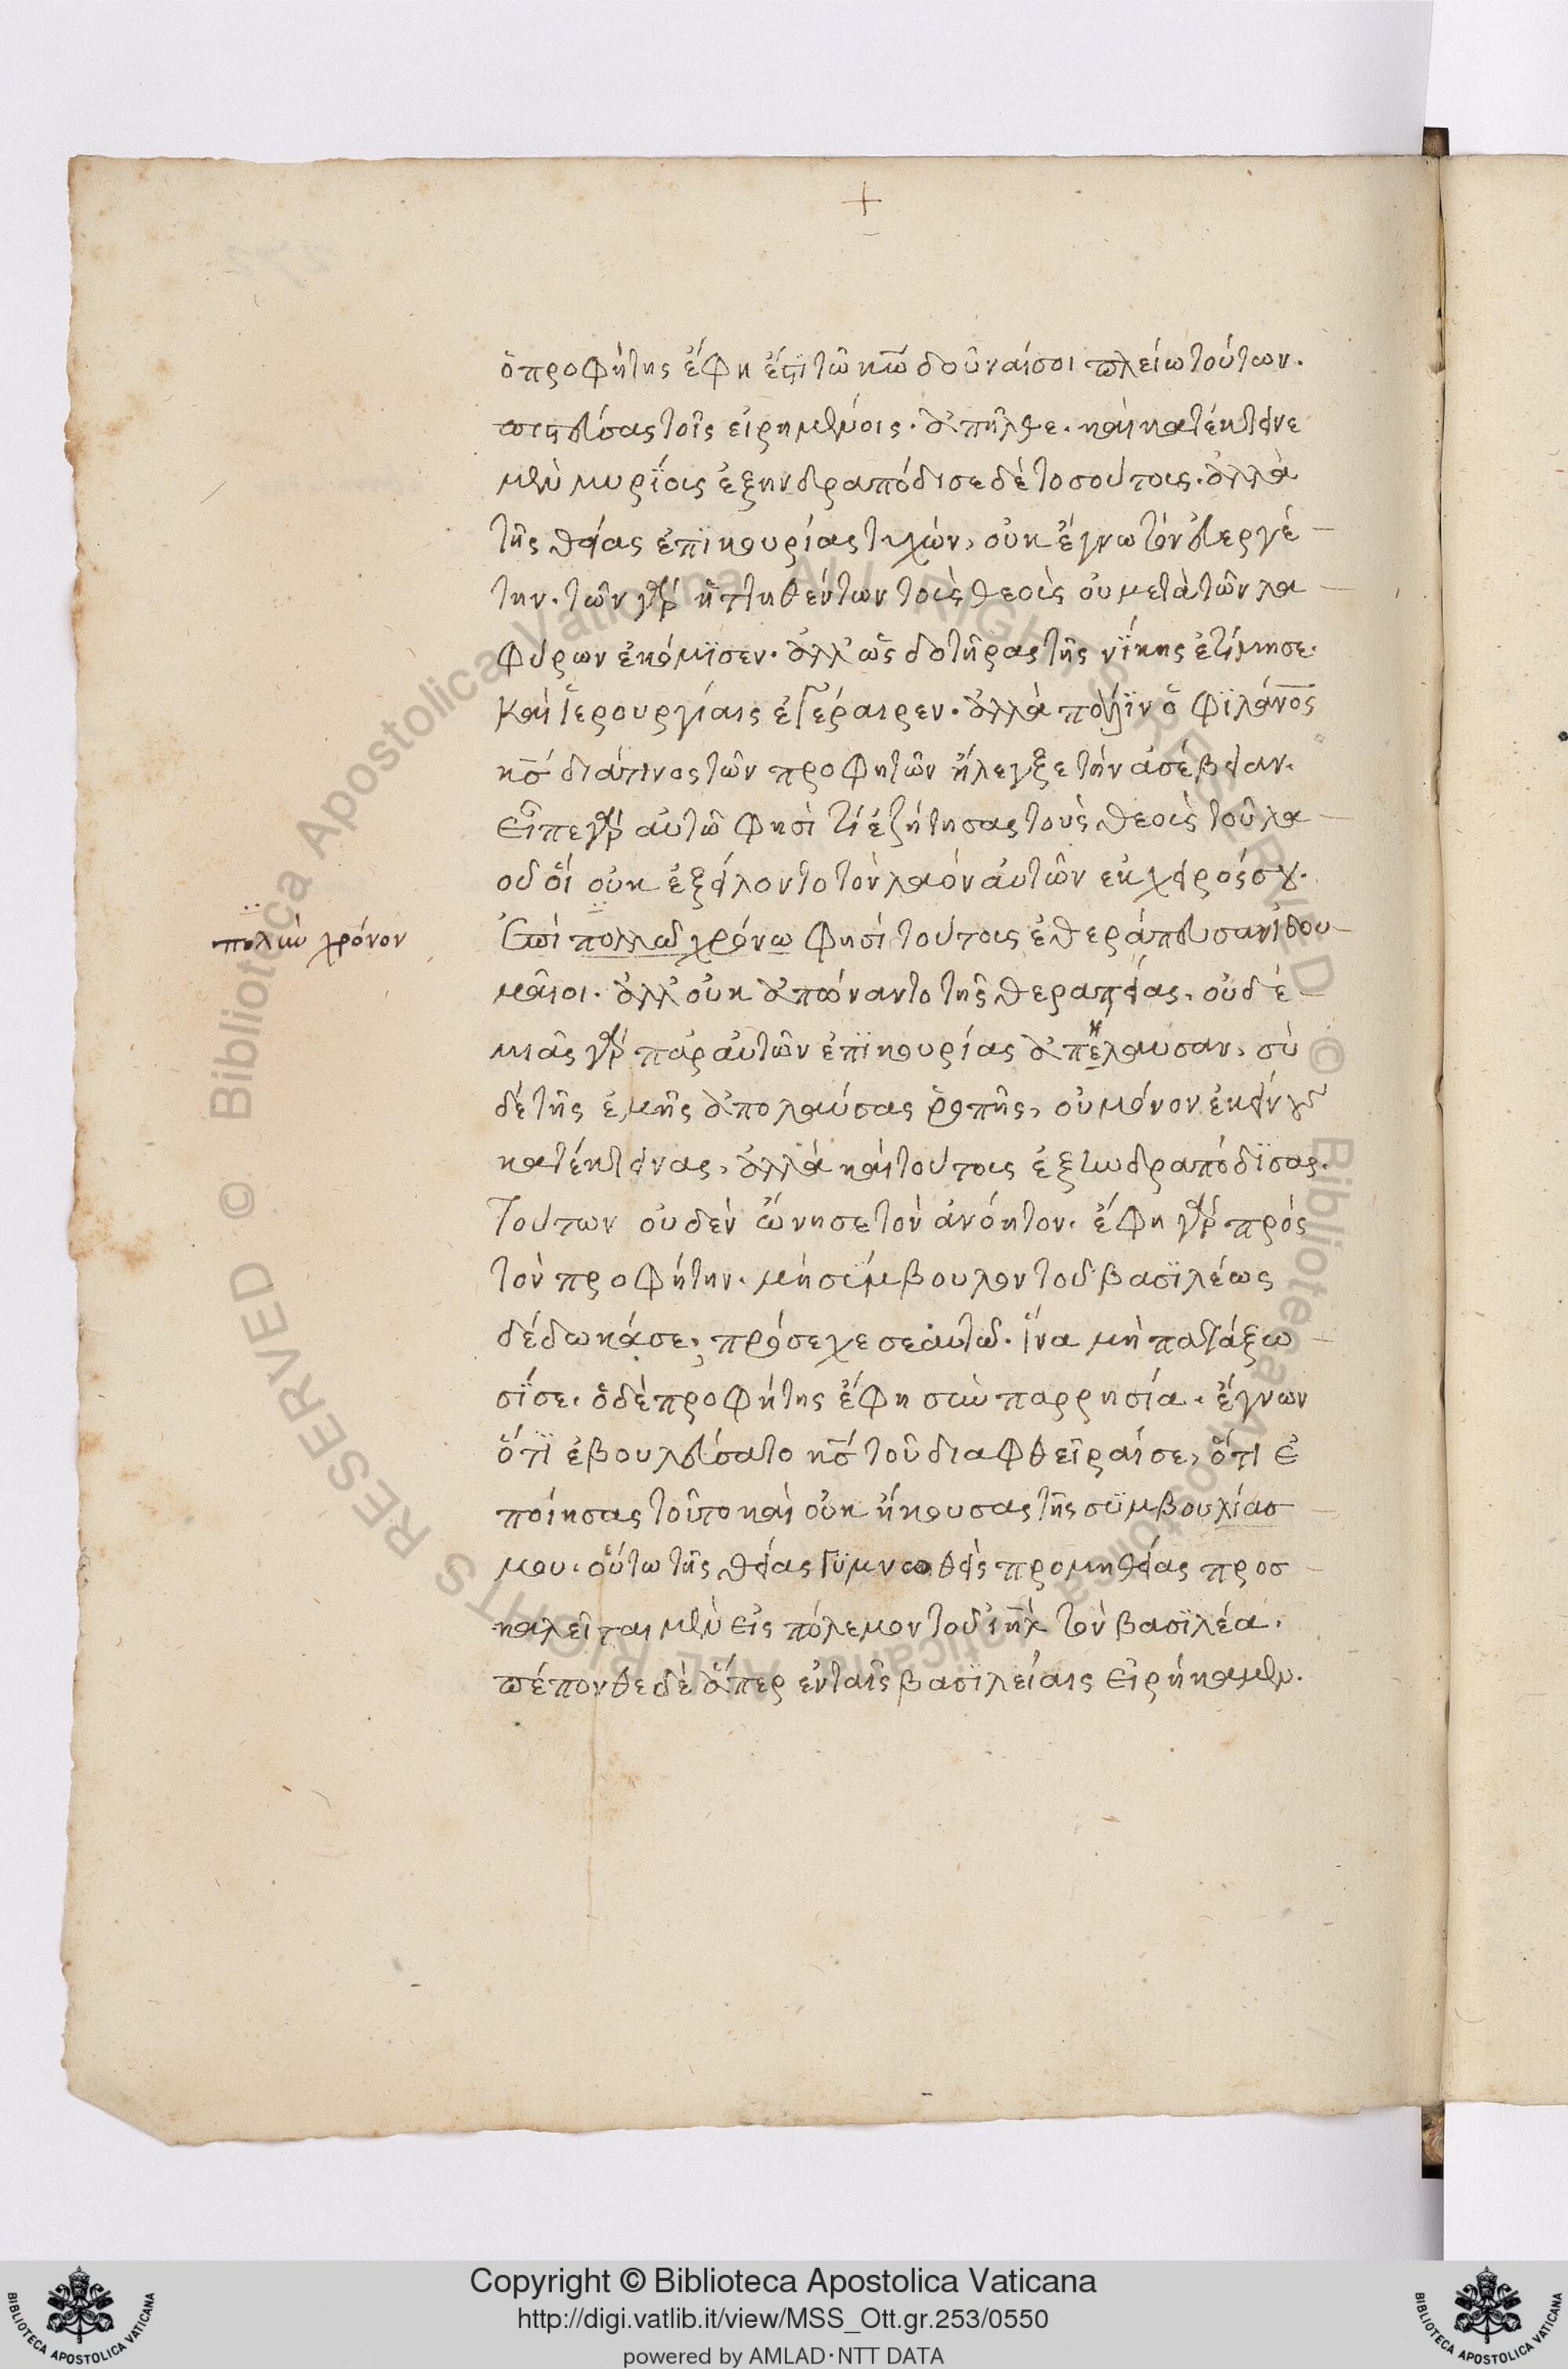 +
ὁ προφήτης ἔφη ἔστι τῶ κω̅ δοῦναί σοι πλείω τούτων.
πιστεύσας τοῖς εἰρημένοις. ἀπῆλθε. καὶ κατέκτεινε
μὲν μυρίους ἐξηνδραπόδισε δὲ τοσούτους. ἀλλὰ
τῆς θείας ἐπϊκουρίας τυχὼν, οὐκ ἔγνω τὸν εὐεργέ
την. τῶν γὰρ ἡττηθέντων τοὺς θεοὺς οὐ μετὰ τῶν λα
φύρων ἐκόμϊσεν. ἀλλ' ὡς δοτῆρας τῆς νίκης ἐτίμησε.
καὶ ἱερουργίαις ἐγέραιρεν. ἀλλὰ πάλϊν ὁ φϊλάνο̅ς
κσ̅ διά τινος τῶν προφητῶν ἤλεγξε τὴν ἀσέβειαν.
εἶπε γὰρ αὐτῶ φησὶ τί ἐζήτησας τοὺς θεοὺς τοῦ λα
οῦ οἵ οὐκ ἐξείλοντο τὸν λαὸν αὐτῶν ἐκ χειρός σου.
ἐπὶ πολλῶ χρόνω φησὶ τούτους ἐθεράπευσαν ἰδου
πολὺν χρόνον
μαῖοι. ἀλλ' οὐκ ἀπώναντο τῆς θεραπείας. οὐδε
μιᾶς γὰρ παρ αὐτῶν ἐπϊκουρίας ἀπέλαυσαν, σὺ
η
δὲ τῆς ἐμῆς ἀπολαύσας ῥοπῆς, οὐ μόνον ἐκείνους
κατέκτεινας, ἀλλὰ καὶ τούτους ἐξηνδραπόδϊσας.
τούτων οὐδὲν ὤνησε τὸν ἀνόητον. ἔφη γὰρ πρὸς
τὸν προφήτην. μὴ σύμβουλον τοῦ βασϊλέως
δέδωκά σε, πρόσεχε σεαυτῶ. ἵνα μὴ πατάξω
σί σε. ὁ δὲ προφήτης ἔφη σὺν παρρησία. ἔγνων
ὅτϊ ἐβουλεύσατο κσ̅ τοῦ διαφθεῖραί σε, ὅτι ἐ
ποίησας τοῦτο καὶ οὐκ ἤκουσας τῆς συμβουλίασ
μου. οὕτω τῆς θείας γυμνωθεὶς προμηθείας προσ
καλεῖται μὲν εἰς πόλεμον τοῦ ιη̅λ τὸν βασϊλέα.
πέπονθε δὲ ἅπερ ἐν ταῖς βασϊλείαις εἰρήκαμεν.
© Biblioteca Apostolica Vaticana ALL RIGHTS RESERVED © Biblioteca Apostolica Vaticana ALL RIGHTS RESERVED
Copyright © Biblioteca Apostolica Vaticana
http://digi.vatlib.it/view/MSS_Ott.gr.253/0550
powered by AMLAD·NTT DATA
BIBLIOTECA APOSTOLICA VATICANA
BIBLIOTECA APOSTOLICA VATICANA